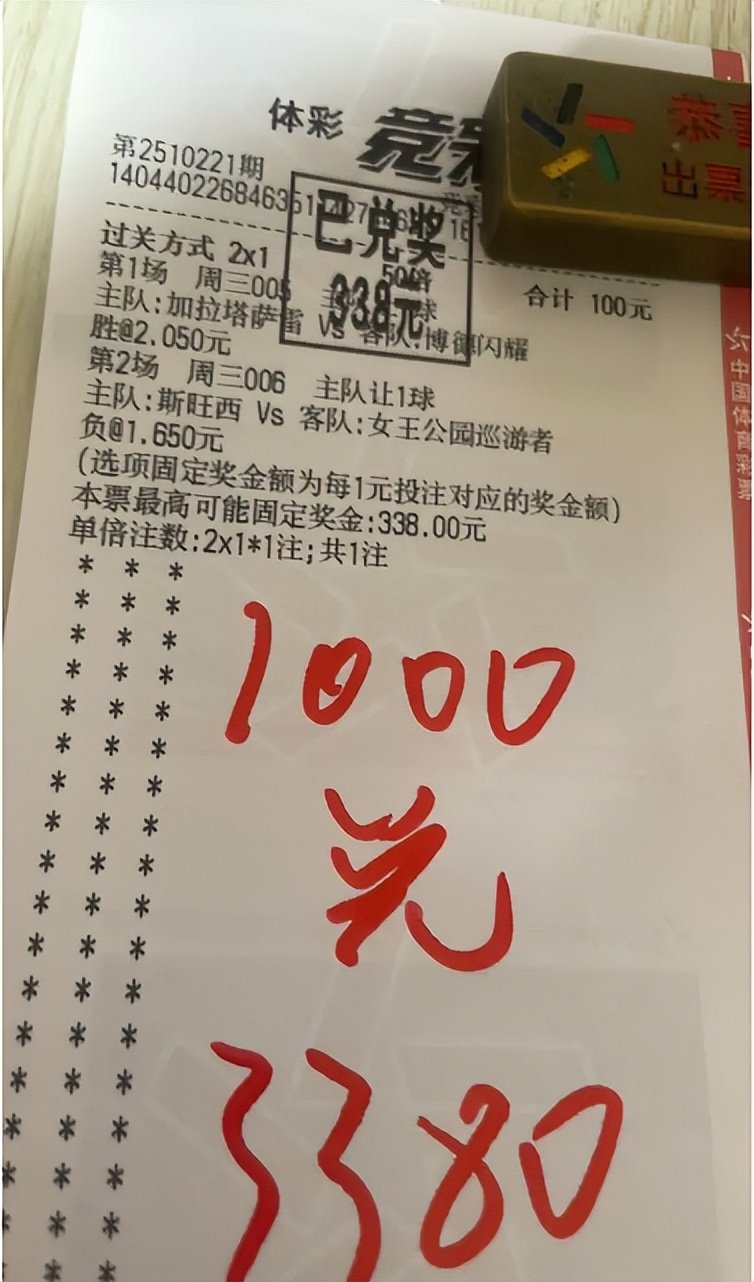 体彩 竞彩
恭喜
出票
第2510221期
已兑奖
338元
过关方式 2x1 50倍 合计 100元
第1场 周三005
主队:加拉塔萨雷 Vs 客队:博德闪耀
胜@2.050元
第2场 周三006 主队让1球
主队:斯旺西 Vs 客队:女王公园巡游者
负@1.650元
(选项固定奖金额为每1元投注对应的奖金额)
本票最高可能固定奖金:338.00元
单倍注数:2x1*1注;共1注
中国体育彩票
1000
兑
3380